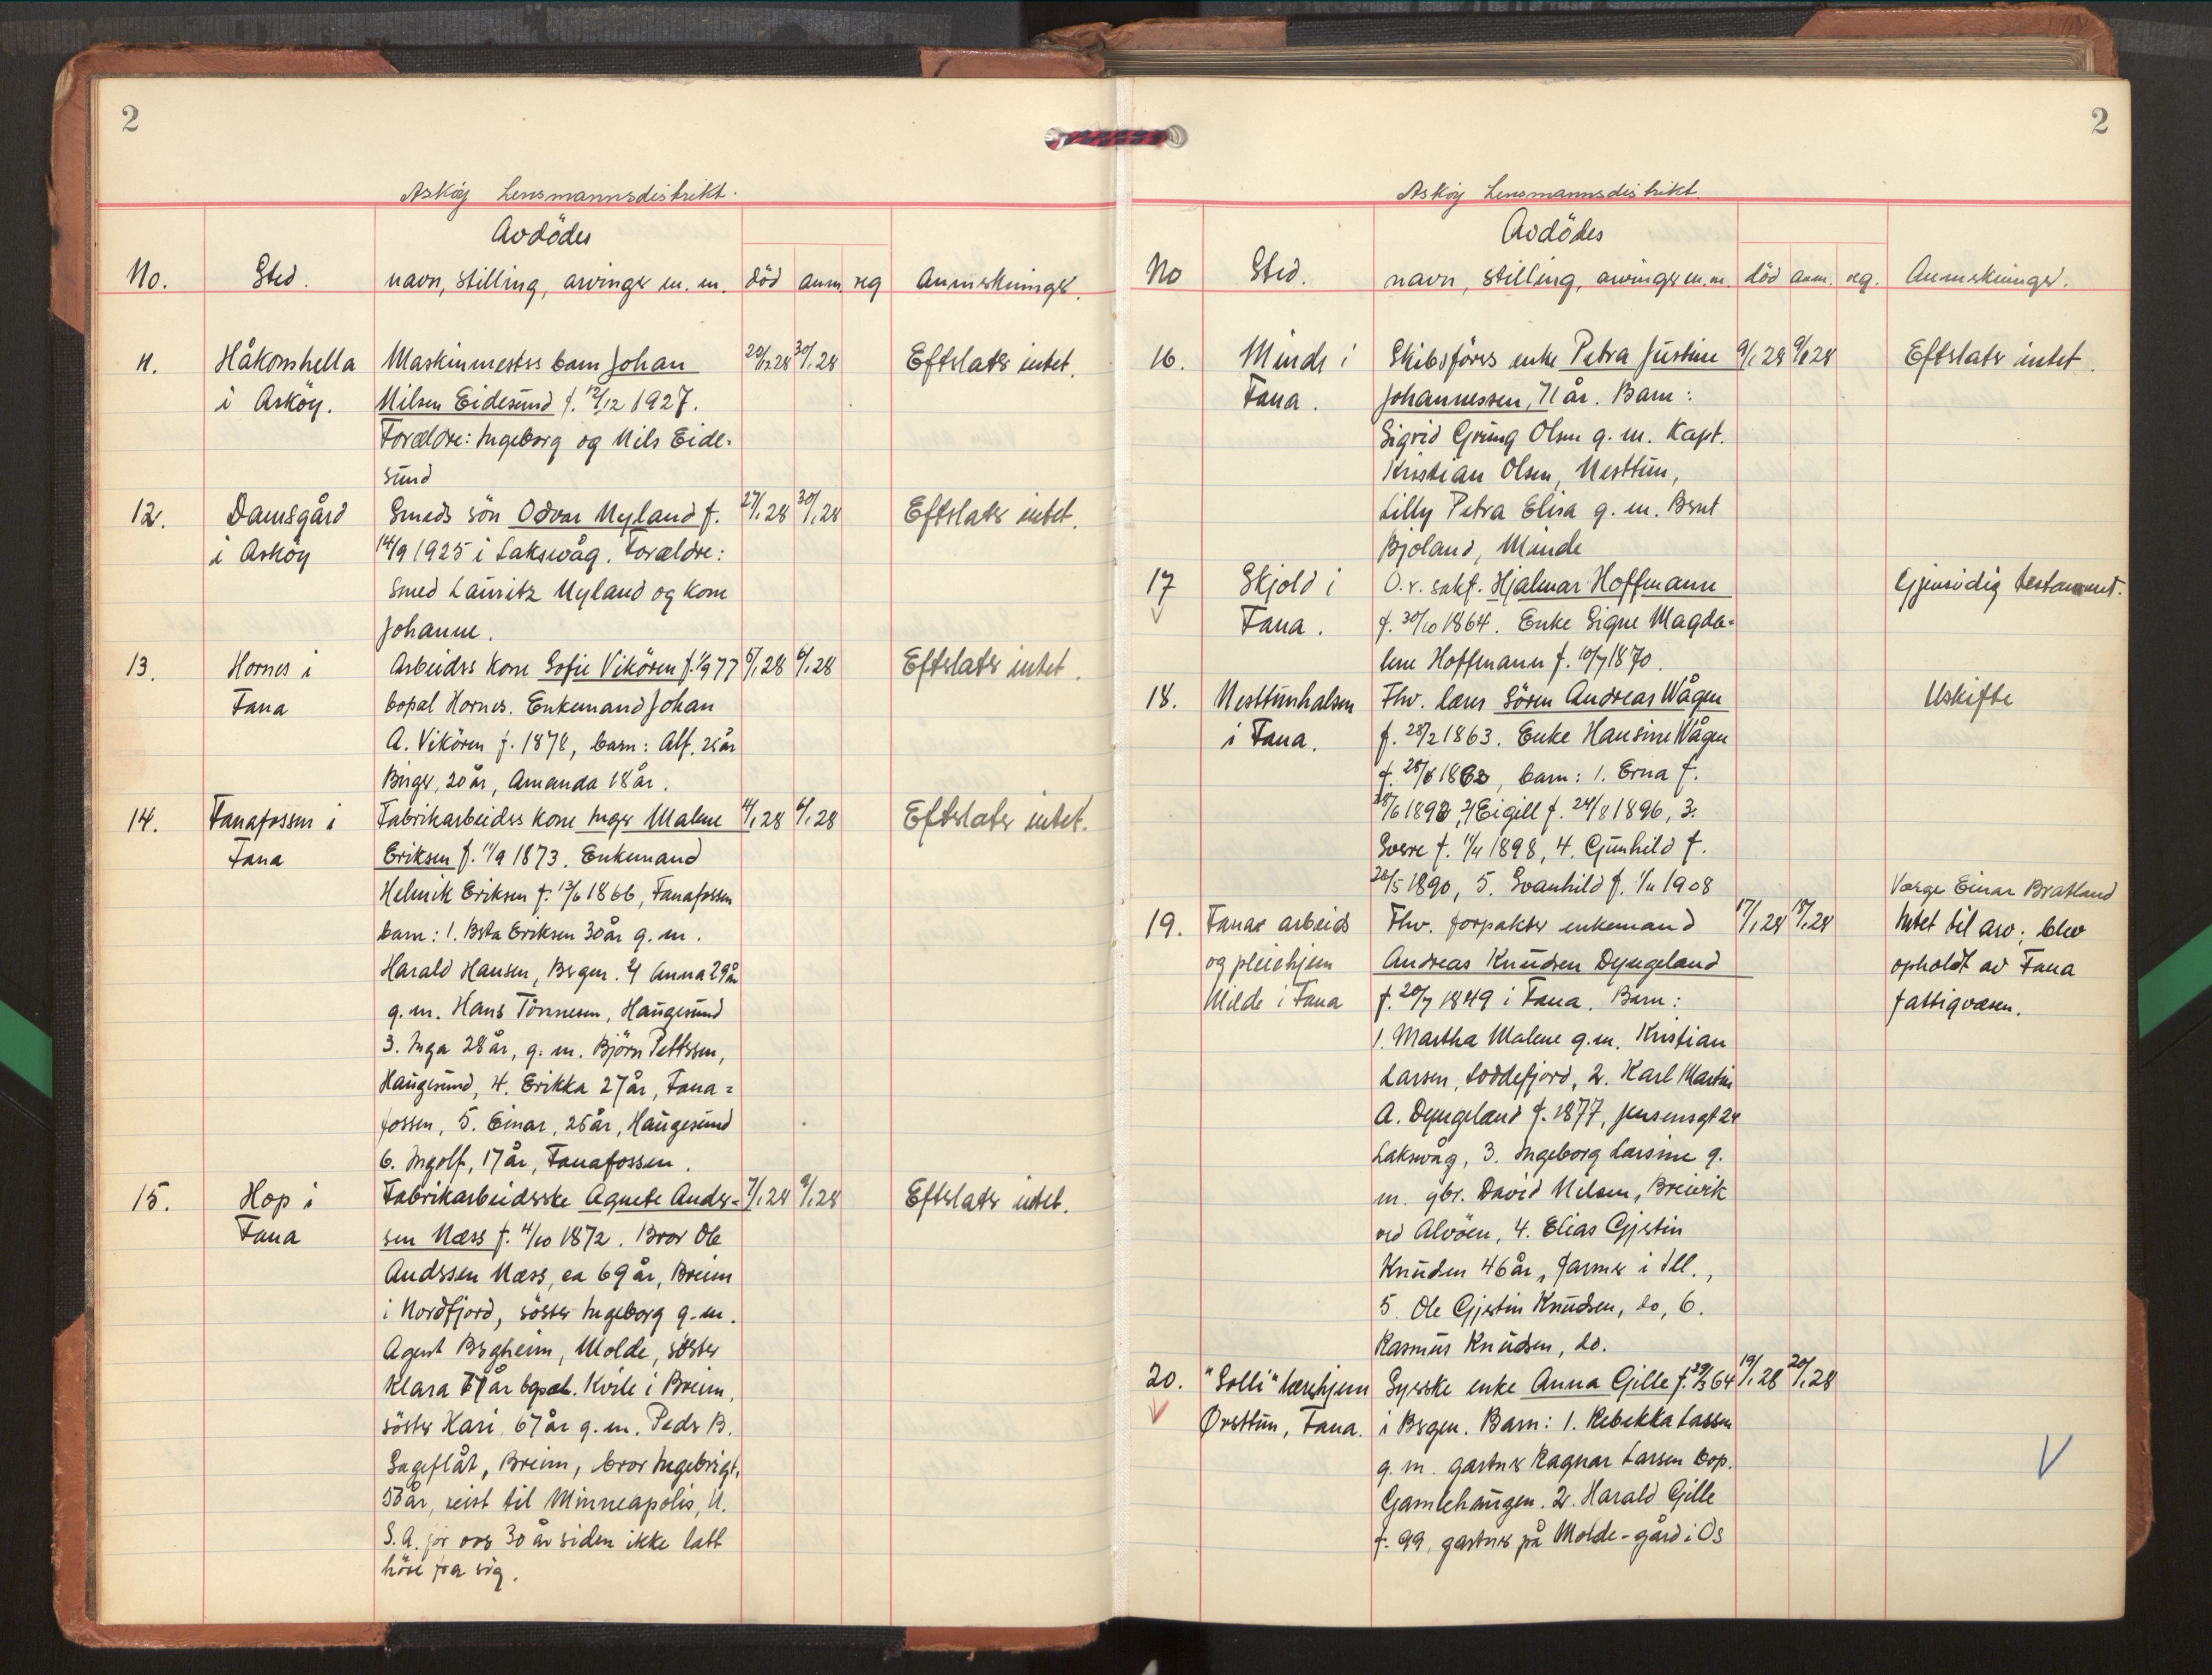 2
Asköy Lensmannsdistrikt.
Avdödes
No. Sted. navn, stilling, arvinger m. m. död anm. reg Anmerkninger.
11. Håkonshella Maskinmesters barn Johan 30/1 28 Efterlater intet.
i Asköy. Nilsen Eidesund f. 12/12 1927.
Forældre: Ingeborg og Nils Eide-
sund
12. Damsgård Smeds sön Odvar Nyland f. 27/1 28 30/1 28 Efterlater intet.
i Asköy 14/9 1925 i Laksevåg. Forældre:
Smed Lauritz Nyland og kone
Johanne.
13. Hornes i Arbeiders kone Sofie Vikören f. 1/9 77 5/1 28 6/1 28 Efterlater intet.
Fana bopæl Hornes. Enkemand Johan
A. Vikören f. 1878, barn: Alf,
Birger, 20 år, Amanda 18 år.
14. Fanafossen i Fabrikarbeiders kone Inger Malene 4/1 28 6/1 28 Efterlater intet.
Fana Eriksen f. 11/9 1873. Enkemand
Helmik Eriksen f. 13/6 1866, Fanafossen
barn: 1. Berta Eriksen 30 år g. m.
Harald Hansen, Bergen. 2/ Anna 29 år
g. m. Hans Tönnesen, Haugesund
3. Inga 28 år, g. m. Björn Pettersen,
Haugesund, 4. Erikka 27 år, Fana=
fossen, 5. Einar, 25 år, Haugesund
6. Ingolf, 17 år, Fanafossen.
15. Hop i Fabrikarbeiderske Agnete Ander= 7/1 28 9/1 28 Efterlater intet.
Fana sen Næss f. 4/10 1872. Bror Ole
Anderssen Næss, ca 69 år, Breim
i Nordfjord, söster Ingeborg g. m.
Agent Bergheim, Molde, söster
Klara år bopæl. Kvile i Breim,
söster Kari, 67 år g. m. Peder B.
Sageflåt, Breim, bror Ingebrigt,
53 år, reist til Minneapolis, U.
S. A. for over 30 år siden ikke latt
höre fra sig.
2
Asköy Lensmannsdistrikt.
Avdödes
No Sted. navn, stilling, arvinger m. m. död anm. reg. Anmerkninger.
16. Minde i Skibsförers enke Petra Justine 9/1 28 9/1 28 Efterlater intet.
Fana. Johannessen, 71 år. Barn:
Sigrid Grüng Olsen g. m. Kapt.
Kristian Olsen, Nesttun,
Lilly Petra Elisa g. m. Bernt
Bjöland, Minde
17 Skjold i O. r. sakf. Hjalmar Hoffmann Gjensidig testament.
Fana. f. 30/10 1864. Enke Signe Magda=
lene Hoffmann f. 10/7 1870.
18. Nesttunhalsen Fhv. lærer Sören Andreas Wågen Uskifte
i Fana. f. 28/2 1863. Enke Hansine Wågen
f. barn: 1. Erna f.
2/ Eigill f. 24/8 1896, 3.
Sverre f. 11/4 1898, 4. Gunhild f.
28/5 1890, 5. Svanhild f. 1/11 1908 Værge Einar Bratland
19. Fanas arbeids Fhv. forpakter enkemand 17/1 28 18/1 28 Intet til arv; blev
og pleiehjem Andreas Knudsen Dyngeland opholdt av Fana
Milde i Fana f. 20/7 1849 i Fana. Barn: fattigvæsen.
1. Martha Malene g. m. Kristian
Larsen, Loddefjord, 2. Karl Martin
A. Dyngeland f. 1877, Jensensgt 24
Laksevåg, 3. Ingeborg Larsine g.
m. gbr. David Nilsen, Breivik
ved Alvöen, 4. Elias Gjertin
Knudsen 46 år, farmer i Ill.,
5. Ole Gjertin Knudsen, do, 6.
Rasmus Knudsen, do.
20. "Solli" hvilehjem Syerske enke Anna Gille f. 29/3 64 19/1 28 20/1 28
Øvsttun, Fana. i Bergen. Barn: 1. Rebekka Larsen
g. m. gartner Ragnar Larsen bop.
Gamlehaugen. 2. Harald Gille
f. 99, gartner på Molde-gård i Os